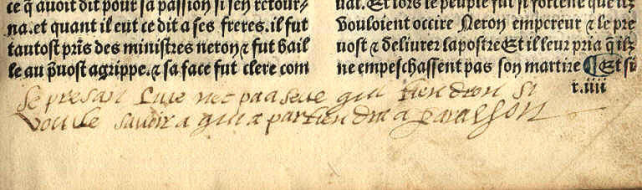 ce q̃ avoit dit pour sa passion si sen retour/
na.et quant il eut ce dit a ses freres.il fut
tantost pris des ministres neron⁊ fut bail
le au p̃uost agrippe.⁊ sa face fut clere com
uat. Et lors le peuple fut si forcene que ilz
vouloient occire Neron empereur ⁊ le pre
uost ⁊ delivrer lapostre Et il leur pria q̃ ilz
ne empeschassent pas son martire Et si
r.iiii
se presan Livre
qui tiendron si
voule savoir a qui apartiendra a